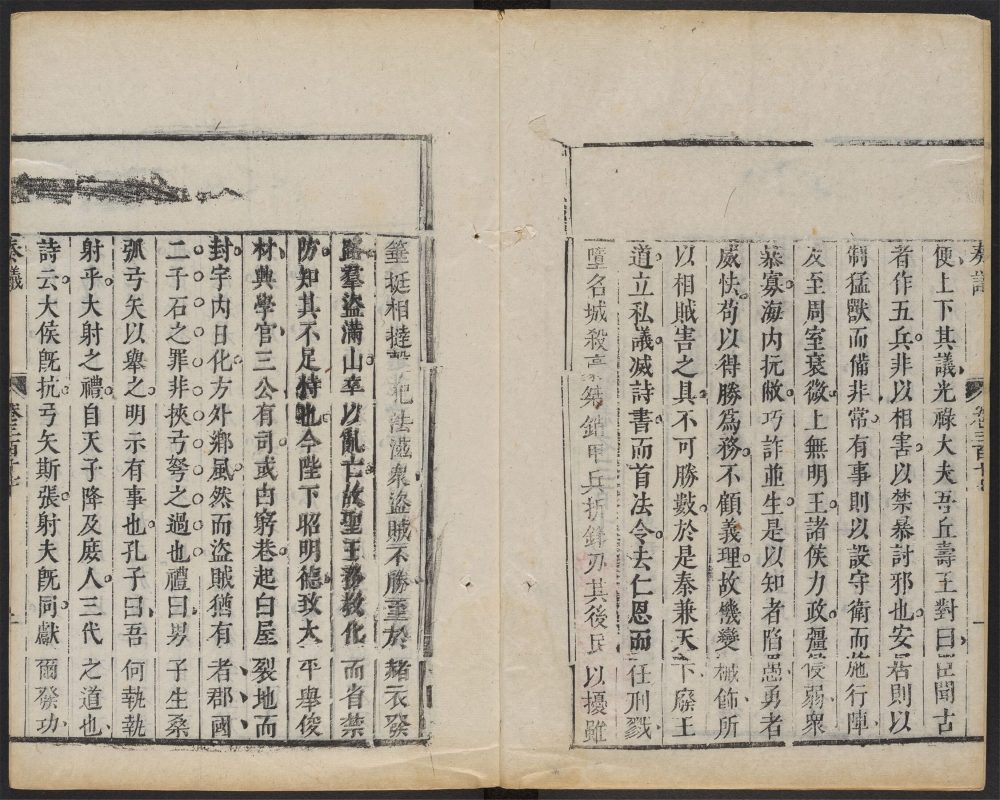 奏議 卷三百十七 一
便上下其議光祿大夫吾丘壽王對曰臣聞古
者作五兵非以相害以禁暴討邪也安居則以
制猛獸而備非常有事則以設守衛而施行陣
及至周室衰微上無明王諸侯力政彊侵弱衆
暴寡海内抗敝巧詐並生是以知者陷愚勇者
威怯苟以得勝爲務不顧義理故機變械飾所
以相賊害之具不可勝數於是秦兼天下廢王
道立私議滅詩書而首法令去仁恩而任刑戮
墮名城殺豪桀銷甲兵折鋒刃其後民以擾
箠挺相撻擊犯法滋衆盜賊不勝至於赭衣
羣盜滿山卒以亂亡故聖王務敎化而省禁
防知其不足恃也今陛下昭明德致太平舉俊
材興學官三公有司或由窮巷起白屋裂地而
封宇内日化方外鄉風然而盜賊猶有者郡國
二千石之罪非挾弓弩之過也禮曰男子生桑
弧弓矢以舉之明示有事也孔子曰吾何執執
射乎大射之禮自天子降及庶人三代之道也
詩云大侯旣抗弓矢斯張射夫旣同獻爾發功
奏議